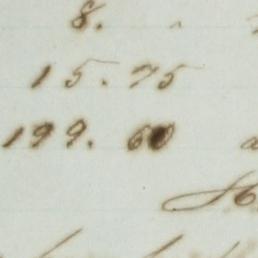 8.
15.75
199.60